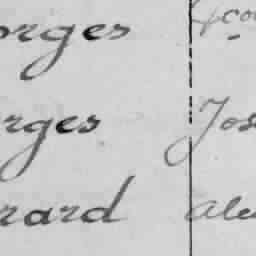 orges
rges Jos
rard ale